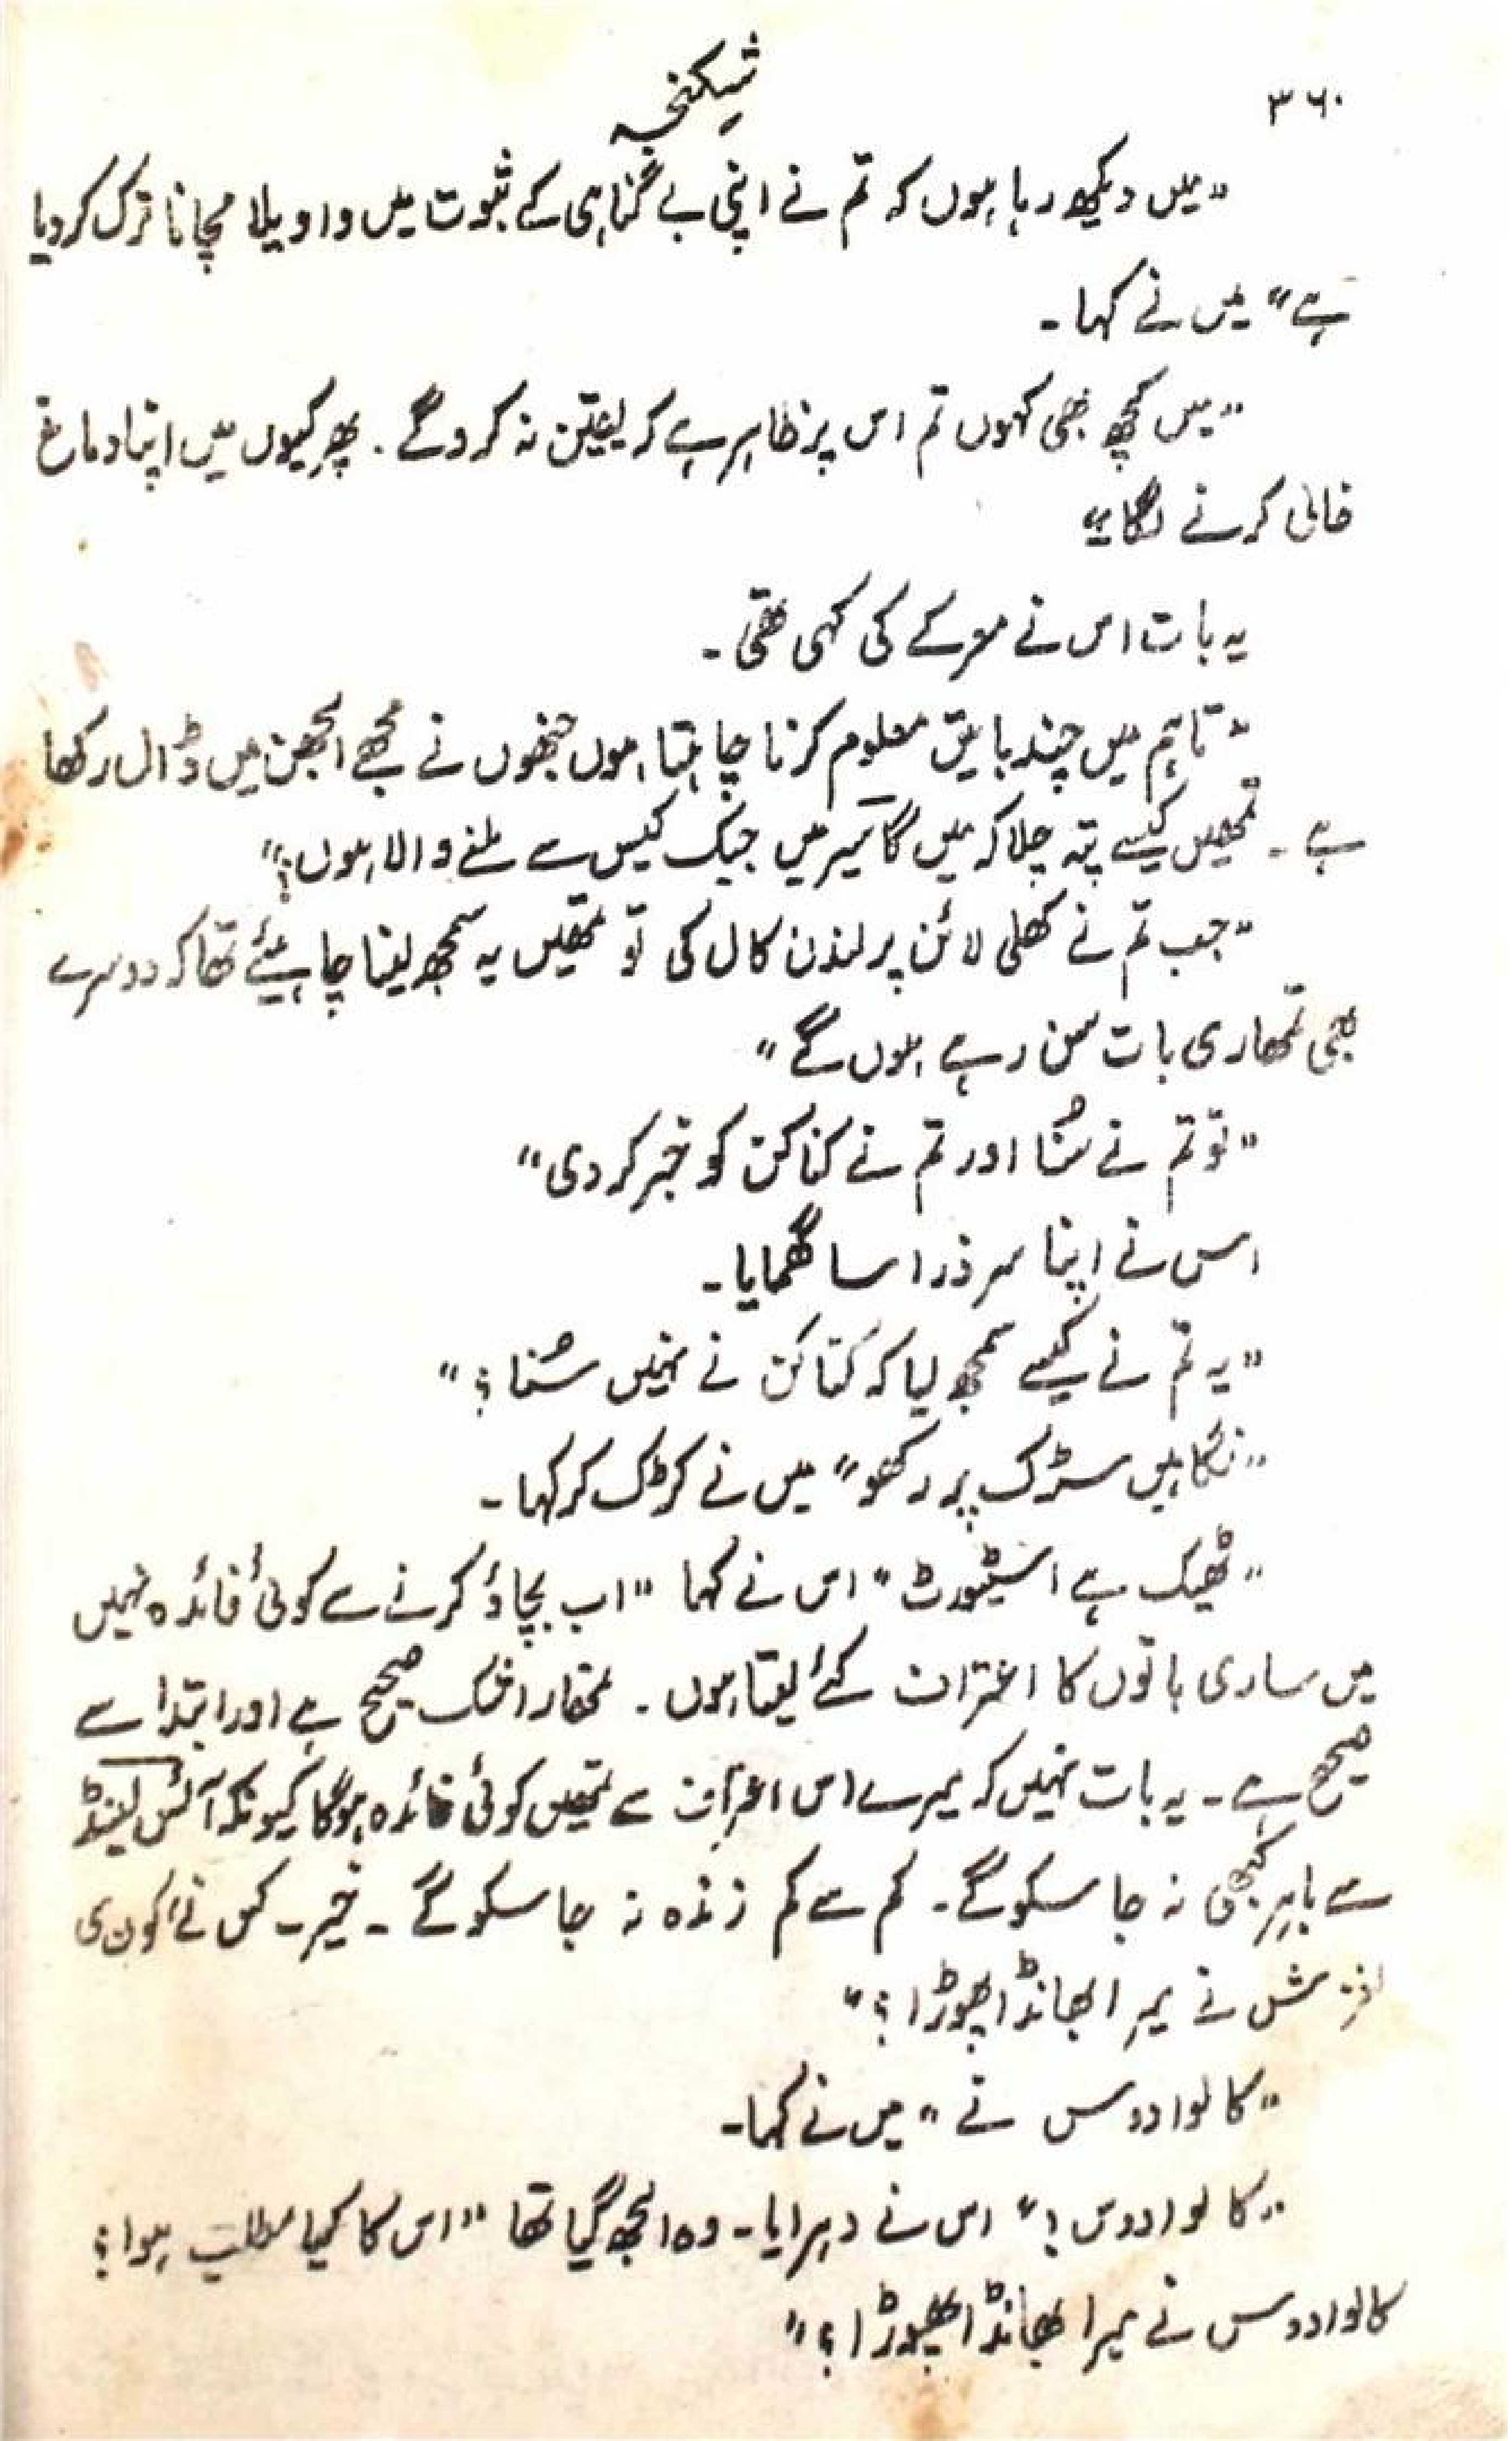 ۳۶۰
شکنجہ
”میں دیکھ رہا ہوں کہ تم نے اپنی بے گناہی کے ثبوت میں واویلا مچانا ترک کر دیا
ہے“ میں نے کہا۔
”میں کچھ بھی کہوں تم اس پر ظاہر ہے کہ یقین نہ کرو گے۔ پھر کیوں میں اپنا دماغ
خالی کرنے لگا۔“
یہ بات اس نے معرکے کی کہی تھی۔
”تاہم میں چند باتیں معلوم کرنا چاہتا ہوں جنھوں نے مجھے الجھن میں ڈال رکھا
ہے۔ تمھیں کیسے پتہ چلا کہ میں گائسیر میں جیک کیس سے ملنے والا ہوں؟“
”جب تم نے کھلی لائن پر لندن کال کی تو تمھیں یہ سمجھ لینا چاہیئے تھا کہ دوسرے
بھی تمھاری بات سن رہے ہوں گے“
”تو تم نے سُنا اور تم نے کناکن کو خبر کر دی“
اس نے اپنا سر ذرا سا گھمایا۔
”یہ تم نے کیسے سمجھ لیا کہ کناکن نے نہیں سُنا؟“
”نگاہیں سڑک پر رکھو“ میں نے کڑک کر کہا۔
”ٹھیک ہے اسٹیورٹ“ اس نے کہا ”اب بچاؤ کرنے سے کوئی فائدہ نہیں
میں ساری باتوں کا اعتراف کئے لیتا ہوں۔ تمھارا شک صحیح ہے اور ابتدا سے
صحیح ہے۔ یہ بات نہیں کہ میرے اس اعتراف سے تمھیں کوئی فائدہ ہوگا کیونکہ آئس لینڈ
سے باہر کبھی نہ جا سکو گے۔ کم سے کم زندہ نہ جا سکو گے۔ خیر۔ کس نے، کون سی
لغزش نے میرا بھانڈا پھوڑا؟“
”کالوادوس نے“ میں نے کہا۔
”کالوادوس!“ اس نے دہرایا۔ وہ الجھ گیا تھا ”اس کا کیا مطلب ہوا؟
کالوادوس نے میرا بھانڈا پھوڑا؟“